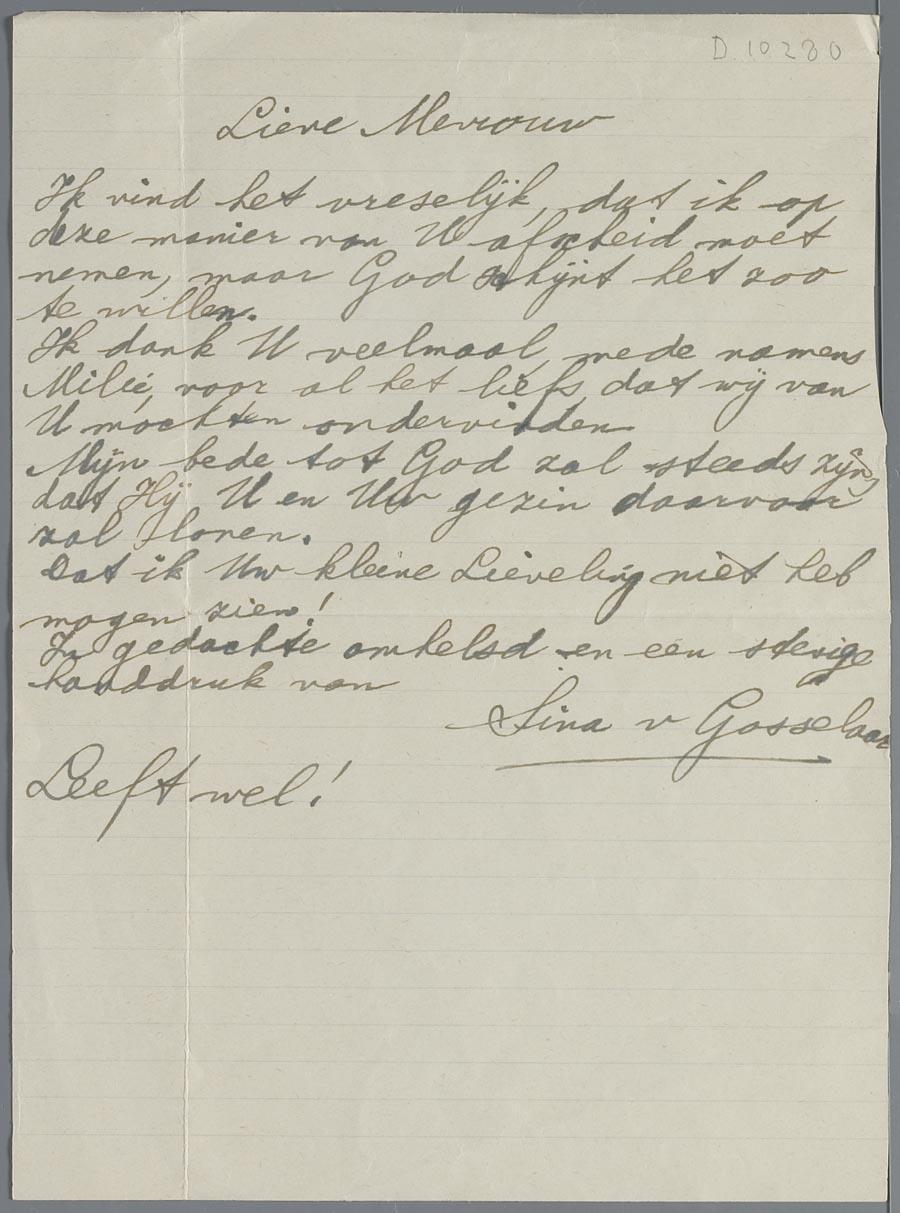 D.10280
Lieve Mevrouw
Ik vind het vreselijk, dat ik op
deze manier van U afscheid moet
nemen, maar God schijnt het zoo
te willen.
Ik dank U veelmaal, mede namens
Milie, voor al het liefs, dat wij van
U mochten ondervinden
Mijn bede tot God zal steeds zijn,
dat Hij U en Uw gezin daarvoor
zal lonen.
Dat ik Uw kleine Lieveling niet heb
mogen zien!
In gedachte omhelsd en een stevige
handdruk van
Sina v Gosselaar
Leeft wel!